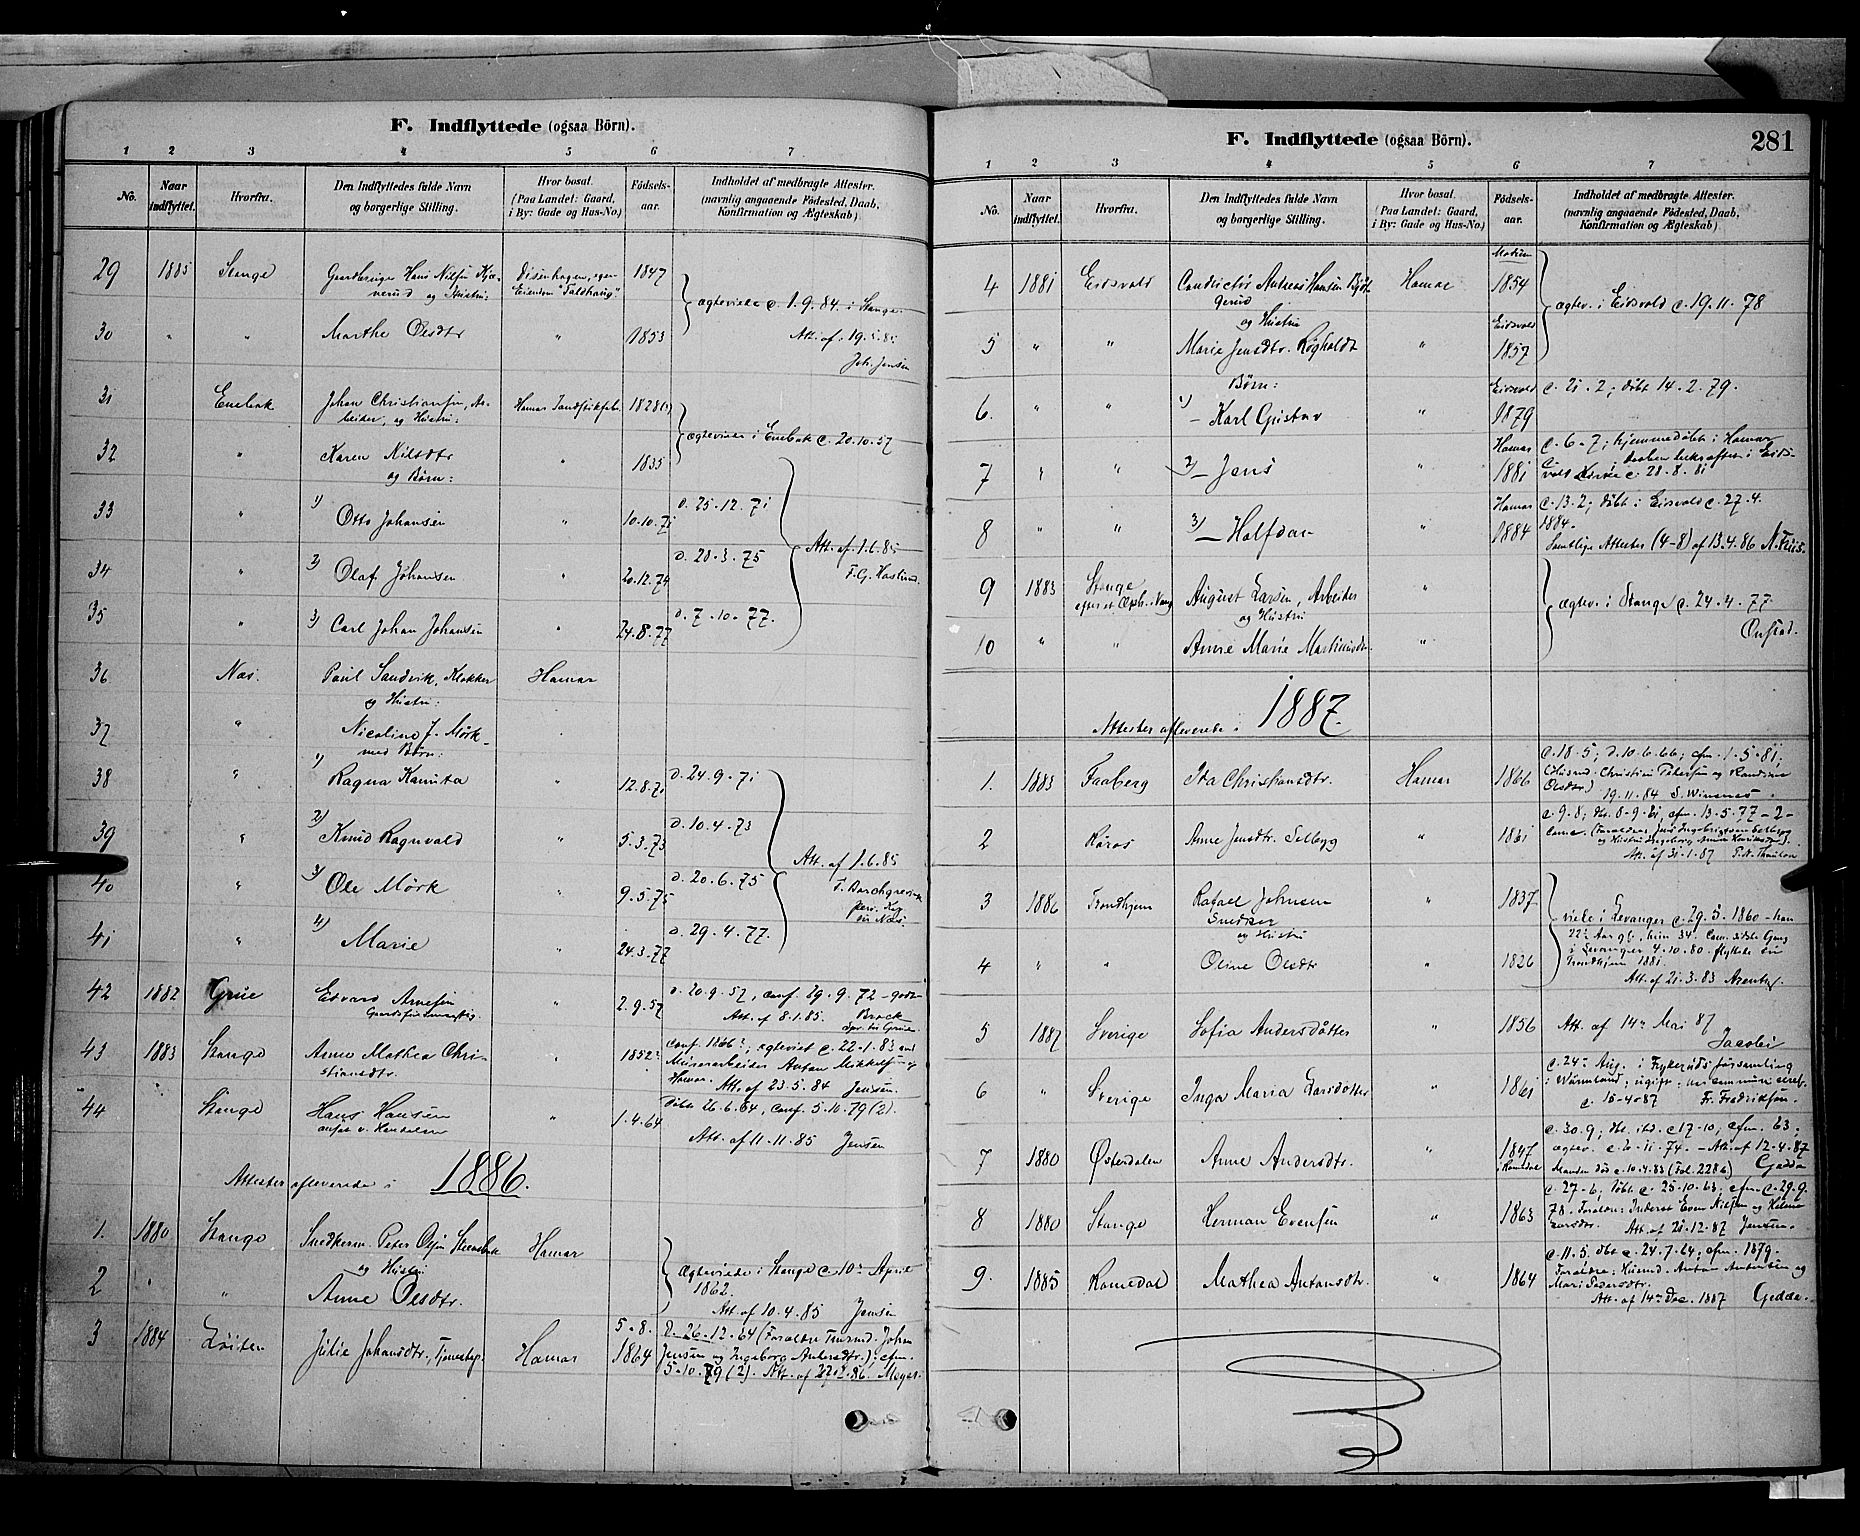 F. Indflyttede (ogsaa Börn).
1 2 3 4 5 6 7
No. Naar indflyttet. Hvorfra. Den Indflyttedes fulde Navn og borgerlige Stilling. Hvor bosat. (Paa Landet: Gaard, i By: Gade og Hus-No.) Födsels-aar. Indholdet af medbragte Attester. (navnlig angaaende Födested, Daab, Konfirmation og Ægteskab)
29 1885 Stange Gaardbruger Hans Nilsen 1847
og Hustru: Eiendom
ægteviede c. 1.9.84 i Stange.
30 " " Marthe Olsdtr " 1853 Att. af 19.5.85
Joh. Jensen
31 Enebak Johan Christiansen, Ar- Hamar 1828(?)
beider, og Hustru:
ægteviede i Enebak c. 20.10.57
32 " Karen Nilsdtr " 1835
og Børn:
33 " 1) Otto Johansen " 10.10.71 d. 25.12.71
Att. af 1.6.85
34 " 2) Olaf Johansen " 20.12.74 d. 28.3.75
F.G.
35 " 3) Carl Johan Johansen " 24.8.77 d. 7.10.77.
36 Næs. Paul Sandvik, Klokker Hamar
og Hustru:
37 " Nicoline J. Mørk
med Børn:
38 " 1) Ragna Kamita " 12.8.71 d. 24.9.71
39 " 2) Knud Ragnvald " 5.3.73 d. 10.4.73
Att. af 1.6.85
40 " 3) Ole Mørk " 9.5.75 d. 20.6.75
41 " 4) Marie 24.3.77 d. 29.4.77.
42 1882 Grue Edvard Arnesen " 2.9.57 d. 20.9.57, conf. 29.9.72 -
Att. af 8.1.85. Brock
43 1883 Stange Anne Mathea Chri- " 1852? conf. 1866?; ægteviet c. 22.1.83 med
stiansdtr. Murerarbeider Anton Mikkelsen
Hamar. Att. af 23.5.84 Jensen
44 Stange Hans Hansen " 1.4.64 døbt 26.6.64, conf. 5.10.79 (2).
Att. af 11.11.85 Jensen
Attester afleverede i 1886.
1. 1880 Stange Snedkerm. Peter Hamar
og Hustru
Ægteviede i Stange c. 10de April
2 " " Anne Olsdtr. 1862.
Att. af 10.4.85 Jensen
3 1884 Løiten Julie Johansdtr., Tjenestep. Hamar 5.8. 1864 d. 26.12.64 (Forældre Johan
Jensen og Ingeborg Andersdtr.); cfm.
5.10.79 (2). Att. af
F. Indflyttede (ogsaa Börn).
281
1 2 3 4 5 6 7
No. Naar indflyttet. Hvorfra. Den Indflyttedes fulde Navn og borgerlige Stilling. Hvor bosat. (Paa Landet: Gaard, i By: Gade og Hus-No.) Födsels-aar. Indholdet af medbragte Attester. (navnlig angaaende Födested, Daab, Konfirmation og Ægteskab)
4 1881 Eidsvold Conductør Andreas Hansen Hamar 1854
og Hustru
ægtev. i Eidsvold c. 19.11.78
5 " " Marie Jensdtr. Røgholdt " Eidsvold 1857
Børn:
6. " " 1) - Karl Gustav " Eidsvold 1879 c. 21.2; døbt 14.2.79.
7 " " 2) - Jens " Hamar 1881 c. 6-7; hjemmedøbt i Hamar
Daaben bekræftet i Eids-
vold Kirke c. 28.8.81
8 " " 3) - Halfdan " Hamar 1884 c. 13.2; døbt i Eidsvold c. 27.4.
1884.
Samtlige Attester (4-8) af 13.4.86
9 1883 Stange August Larsen, Arbeider "
og Hustru
ægtev. i Stange c. 24.4.77
10 " " Anne Marie Martinusdtr. " Onstad.
Attester afleverede i 1887.
1. 1883 Faaberg Ida Christiansdtr. Hamar 1866 c. 18.5; d. 10.6.66; cfm. 1.5.81;
(Husmd. Christian Petersen og Randine
Olsdtr.) 19.11.84 S. Winsnes.
2 Røros Anne Jensdtr. Selbygg " 1861 c. 9.8; dbt. 8-9-61; cfm. 13.5.77
Att. af 31.1.87
3 1886 Trondhjem Rafael Johnsen " 1837
Snedker
og Hustru
viede i Levanger c. 29.5.1860 - han
22 Aar gl., hun 34. Com. sidste Gang
i Levanger 4.10.80. flyttede til
Trondhjem 1881.
4 " " Oline Olsdtr " 1826 Att. af 21.3.83
5 1887 Sverige Sofia Andersdotter " 1856 Att. af 14de Mai 87
Jacobi
6 " Sverige Inga Maria Larsdotter " 1861 c. 24de Aug. i Frykeruds församling
i Wärmland; ugift;
c. 15-4-87 Fr. Fredriksson.
7 1880 Østerdalen Anne Andersdtr. " 1847 i Romedal c. 30.9; dbt. ibd. c 17-10; cfm. 63.
ægtev. c. 6-11-74. - Att. af 12-4-87
Manden død c. 10.4.83 (Fol. 228b) Gedde
8 1880 Stange Herman Evensen " 1863 c. 27-6; døbt c. 25-10-63; cfm. c. 29.9.
78. Forældre: Inderst Even Nielsen og Helene
Larsdtr. Att. af 21-12-87 Jensen.
9. 1885 Romedal Mathea Antonsdtr. " 1864 c. 11.5. dbt c. 24.7.64; cfm. 1879.
Forældre: Husmd. Anton Andersen og
Mari Pedersdtr.
Att. af 14de Dec. 1887 Gedde.